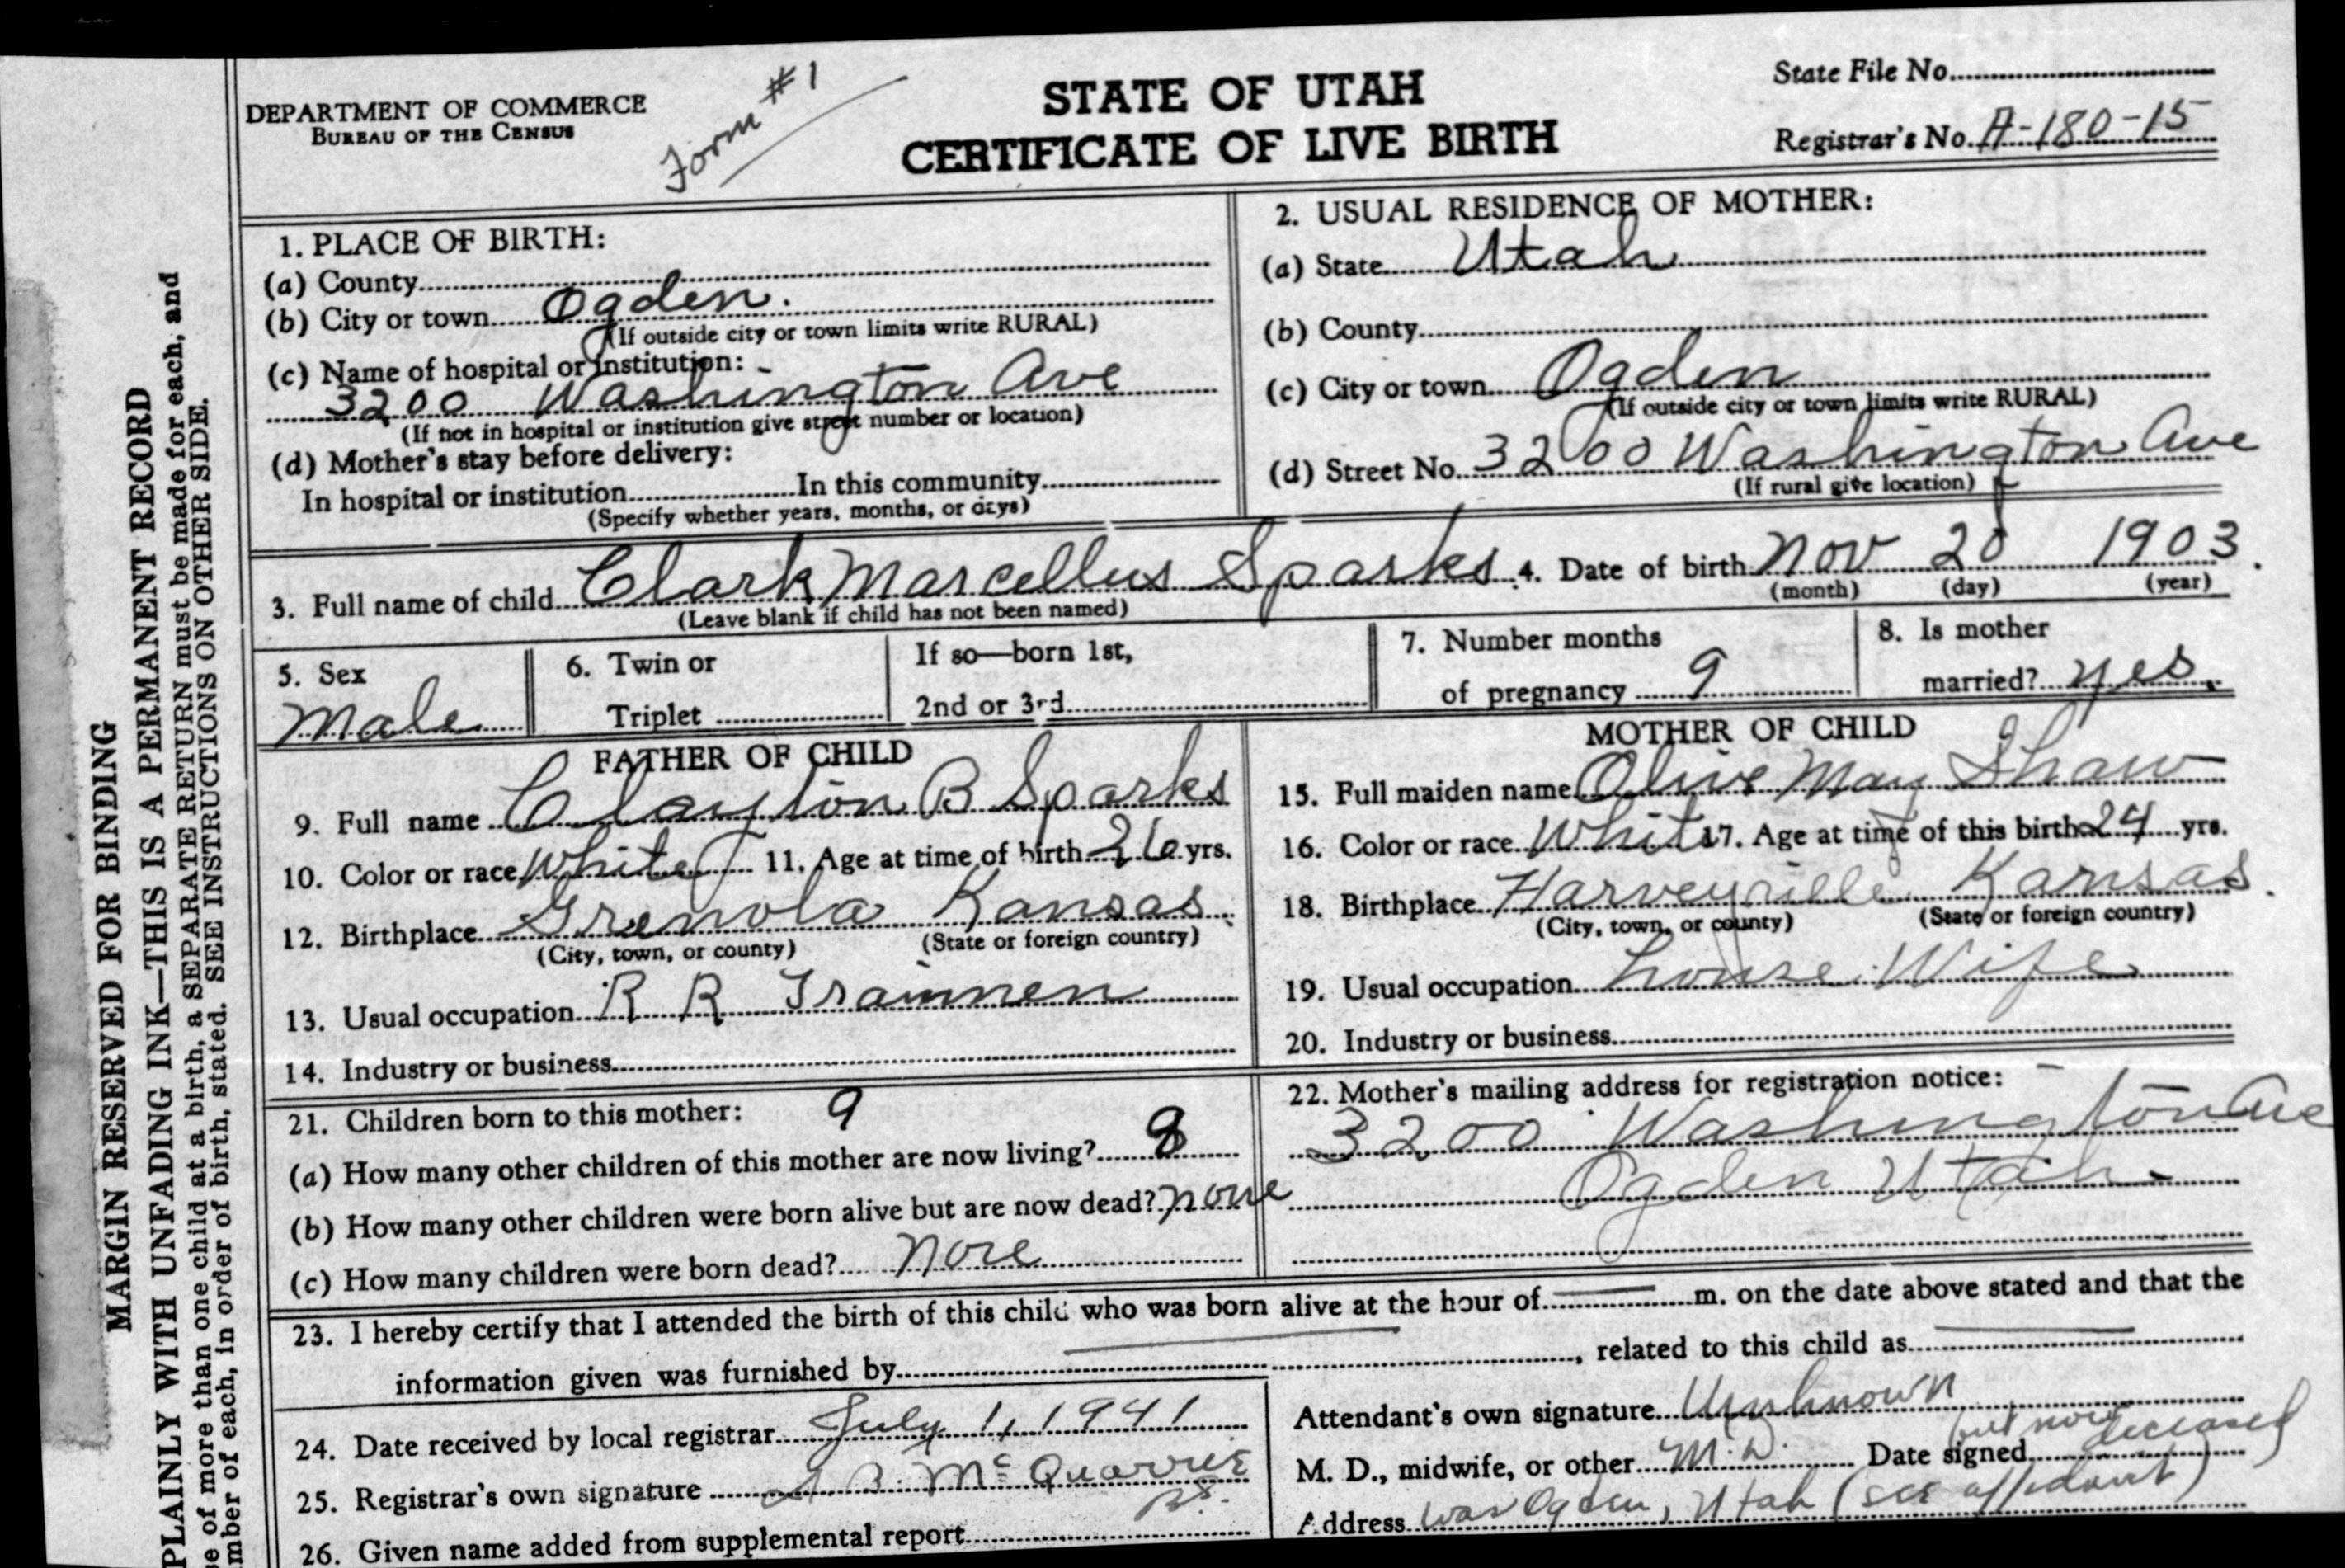 STATE OF UTAH
CERTIFICATE OF LIVE BIRTH
DEPARTMENT OF COMMERCE
BUREAU OF THE CENSUS
Form #1
State File No.
Registrar's No. A-180-15
MARGIN RESERVED FOR BINDING
PLAINLY WITH UNFADING INK—THIS IS A PERMANENT RECORD
of more than one child at a birth, a SEPARATE RETURN must be made for each, and
of each, in order of birth, stated. SEE INSTRUCTIONS ON OTHER SIDE.
1. PLACE OF BIRTH:
(a) County
(b) City or town Ogden.
(If outside city or town limits write RURAL)
(c) Name of hospital or institution:
3200 Washington Ave
(If not in hospital or institution give street number or location)
(d) Mother's stay before delivery:
In hospital or institution In this community
(Specify whether years, months, or days)
2. USUAL RESIDENCE OF MOTHER:
(a) State Utah
(b) County
(c) City or town Ogden
(If outside city or town limits write RURAL)
(d) Street No. 3200 Washington Ave
(If rural give location)
3. Full name of child Clark Marcellus Sparks 4. Date of birth Nov 20 1903.
(Leave blank if child has not been named) (month) (day) (year)
5. Sex
Male
6. Twin or
Triplet
If so—born 1st,
2nd or 3rd
7. Number months
of pregnancy 9
8. Is mother
married? yes.
FATHER OF CHILD
9. Full name Clayton B Sparks
10. Color or race White 11. Age at time of birth 26 yrs.
12. Birthplace Grenola Kansas.
(City, town, or county) (State or foreign country)
13. Usual occupation R R Trainmen
14. Industry or business
MOTHER OF CHILD
15. Full maiden name Olive May Shaw
16. Color or race White 17. Age at time of this birth 24 yrs.
18. Birthplace Harveyville Kansas.
(City, town, or county) (State or foreign country)
19. Usual occupation house Wife
20. Industry or business
21. Children born to this mother: 9
(a) How many other children of this mother are now living? 8
(b) How many other children were born alive but are now dead? none
(c) How many children were born dead? none
22. Mother's mailing address for registration notice:
3200 Washington Ave
Ogden Utah.
23. I hereby certify that I attended the birth of this child who was born alive at the hour of m. on the date above stated and that the
information given was furnished by , related to this child as
24. Date received by local registrar July 1, 1941
25. Registrar's own signature McQuarrie
26. Given name added from supplemental report
Attendant's own signature Unknown
but now deceased
M. D., midwife, or other M.D. Date signed
Address was Ogden, Utah (see affidavit)